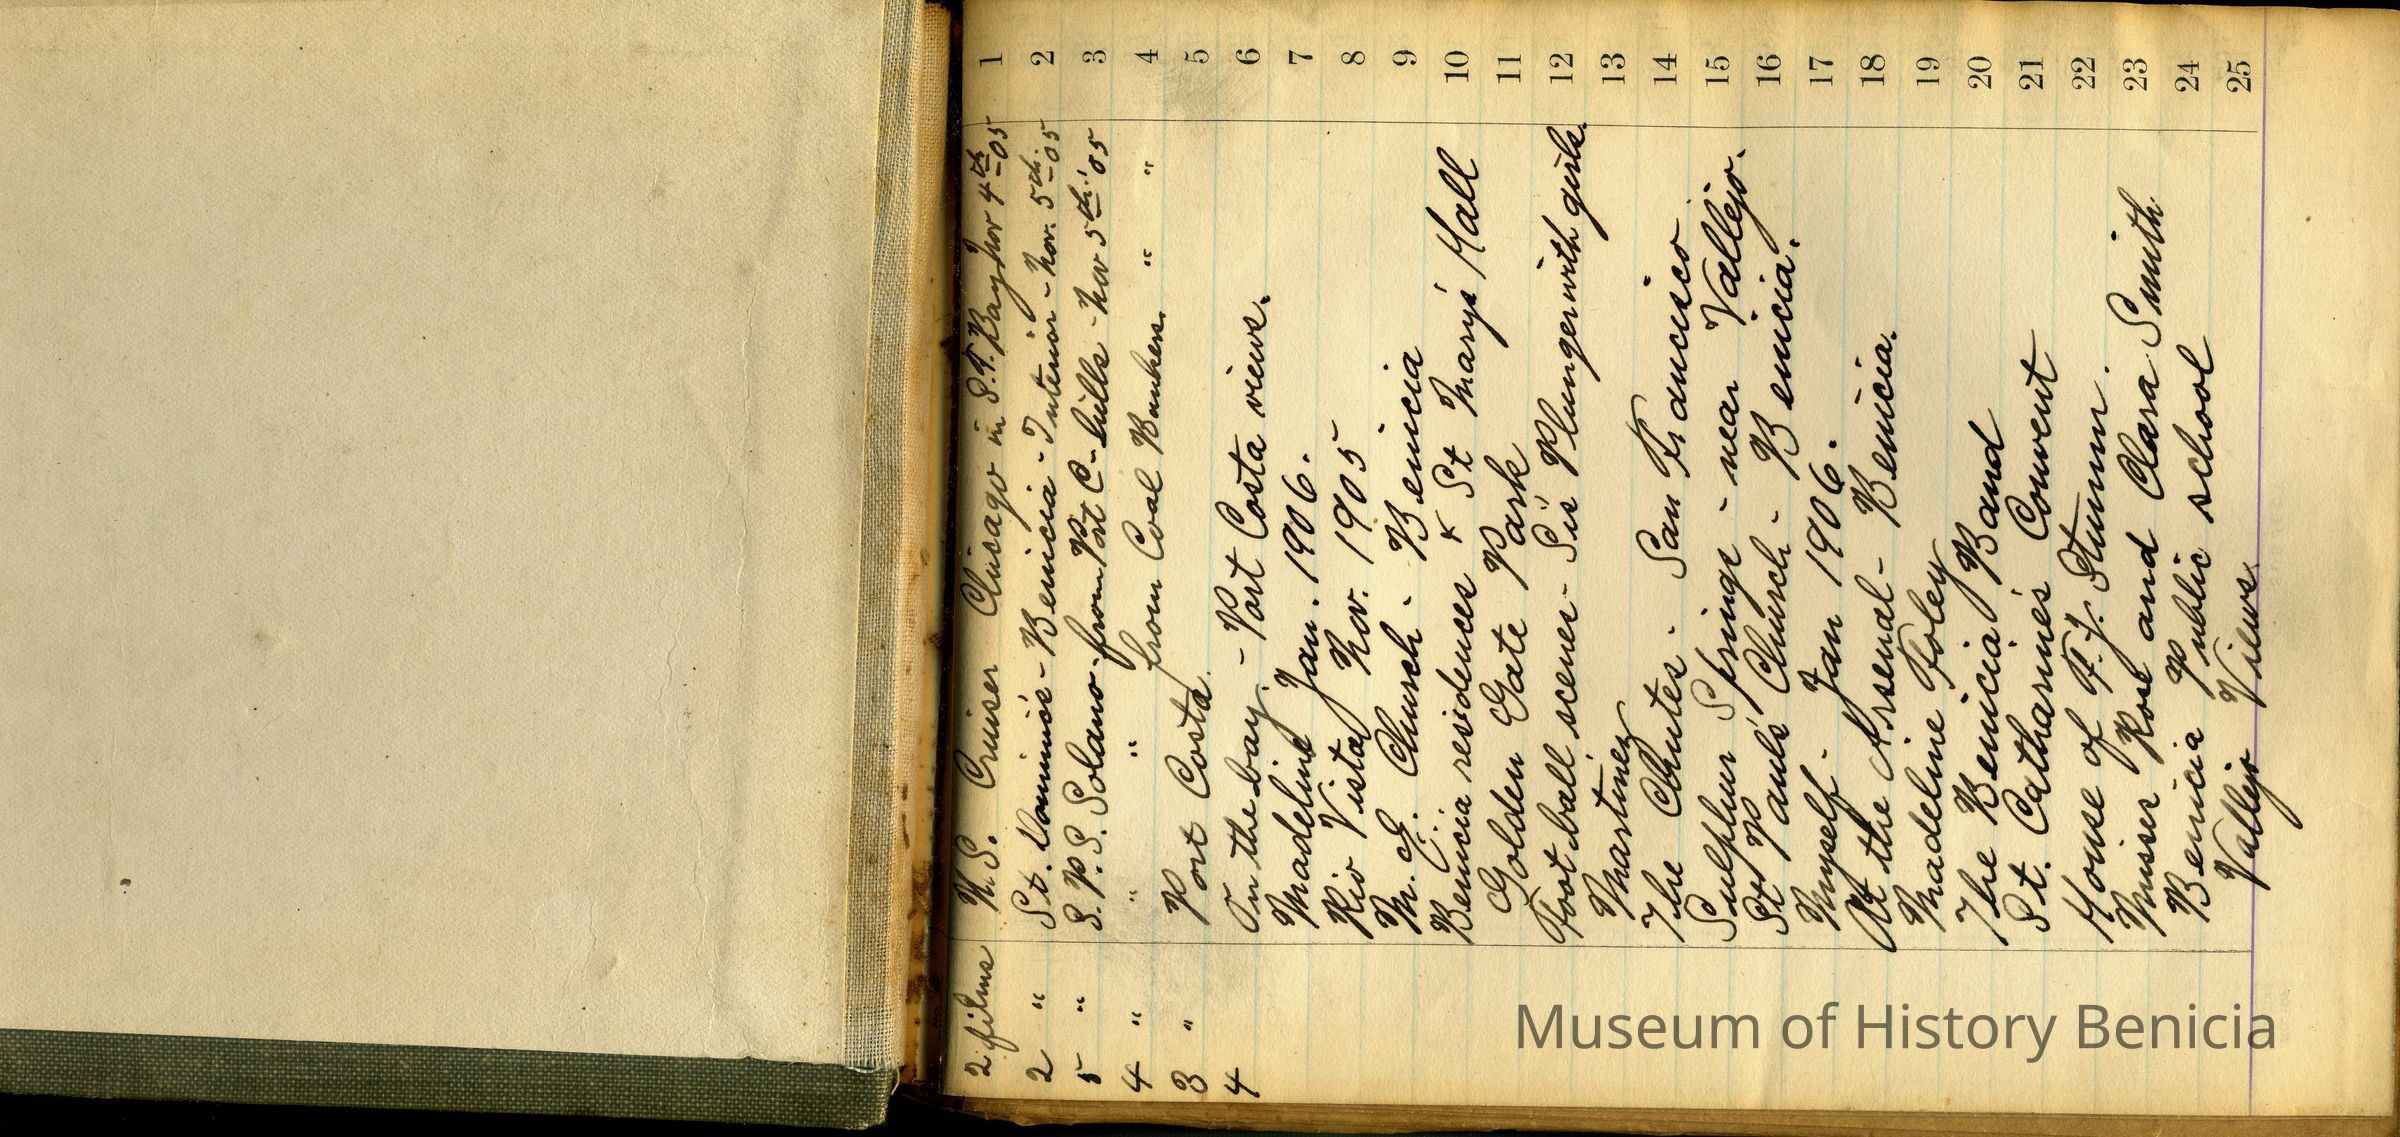 2 films U.S. Cruiser Chicago in S.F. Bay Nov 4th -05 1
2 " St. Dominic's - Benicia - Interior - Nov. 5th. -05 2
5 " S.P.S. Solano from Port C - hills - Nov 5th. '05 3
4 " " " from Coal Bunkers. " " 4
3 " Port Costa 5
4 On the bay. - Port Costa views. 6
Madeline Jan. 1906. 7
Rio Vista Nov. 1905 8
M. E. Church - Benicia 9
Benicia residences & St Mary's Hall 10
Golden Gate Park 11
Foot ball scenes - Sis Plunger with girls. 12
Martinez 13
The Chutes - San Francisco 14
Sulphur Springs - near Vallejo. 15
St Paul's Church - Benicia. 16
Myself - Jan 1906. 17
At the Arsenal - Benicia. 18
Madeline Foley 19
The Benicia Band 20
St. Catharine's Convent 21
House of F. J. Stumm. 22
Misses Rose and Clara Smith 23
Benicia Public school 24
Vallejo Views. 25
Museum of History Benicia